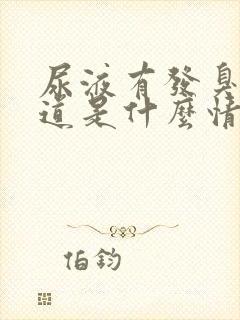 尿液有發臭
道是什麼情
伯鈞